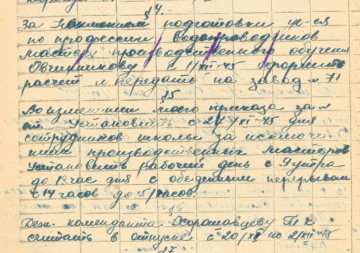 §4.
За подготовки уч-ся
по профессии Водопроводчиков
мастера производственного обучения
Овчинникову с 1/XII-45 оформить
расчет и передать на завод № 71
§5
Во изменении моего приказа за №
от установить с 24/XI-45 дня
сотрудников школы за исключе-
нием производственных мастеров
установить рабочий день с 9 утра
до 18 час дня с обеденным перерывом
с 14 часов до 15 часов.
коменданта
считать в отпуске с 20/XI по 2/XII-45